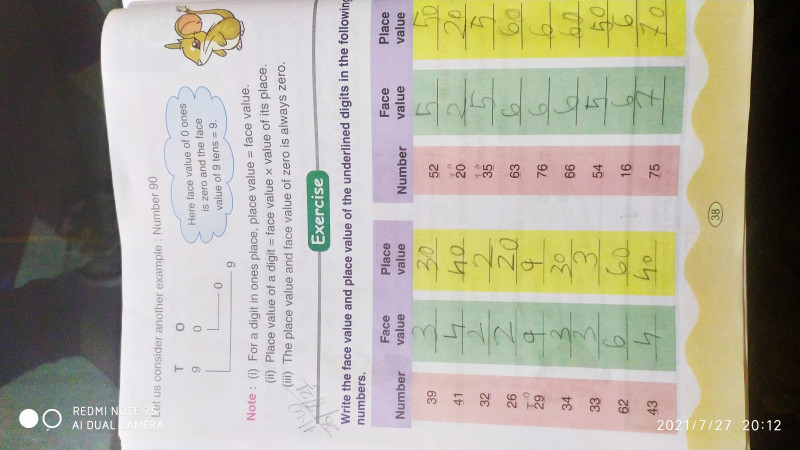 Let us consider another example : Number 90
T O
9 0
0
9
Here face value of 0 ones
is zero and the face
value of 9 tens = 9.
Note : (i) For a digit in ones place, place value = face value.
(ii) Place value of a digit = face value × value of its place.
(iii) The place value and face value of zero is always zero.
Exercise
Write the face value and place value of the underlined digits in the following
numbers.
Number Face value Place value Number Face value Place value
39 3 30 52 5 50
41 4 40 20 2 20
32 2 2 35 5 5
26 2 20 63 6 60
29 9 9 76 6 6
34 3 30 66 6 60
33 3 3 54 5 50
62 6 60 16 6 6
43 4 40 75 7 70
38
REDMI NOTE 7S
AI DUAL CAMERA
2021/7/27 20:12